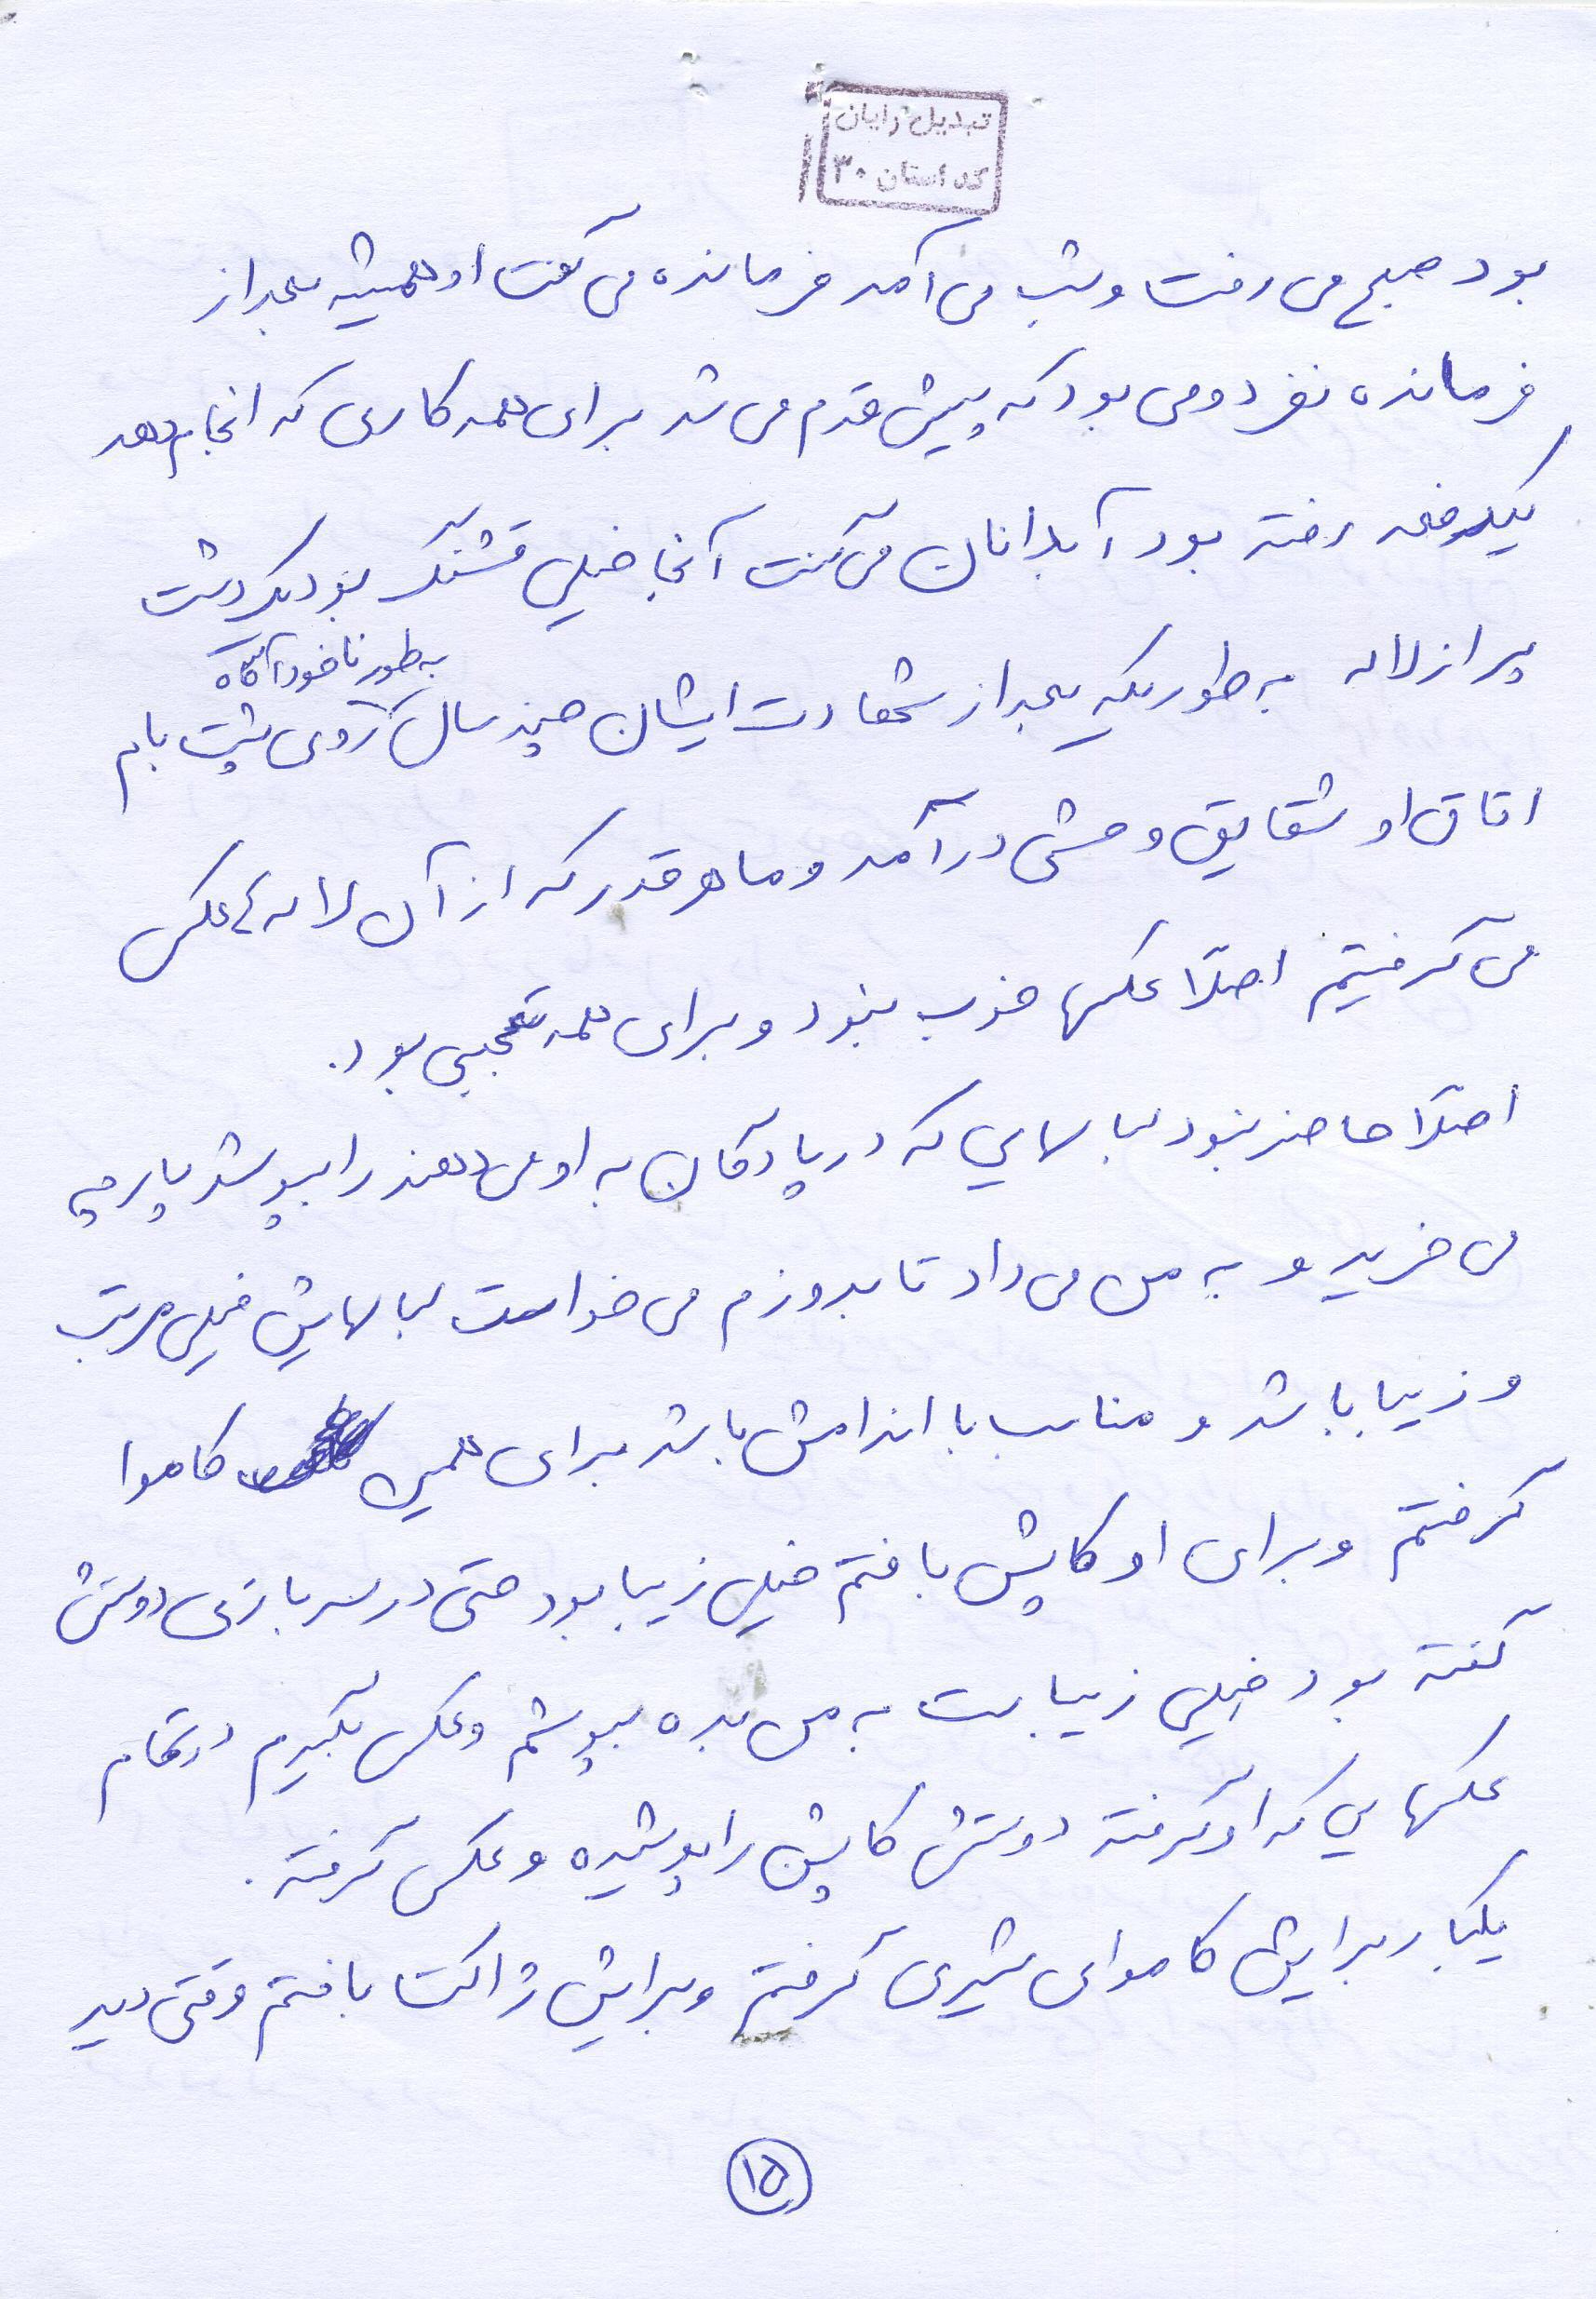 تبدیل رایان
کد استان ۳۰
بود صبح می رفت و شب می آمد فرمانده می گفت او همیشه بعد از
فرمانده نفر دومی بود که پیش قدم می شد برای همه کاری که انجام دهد
یکدفعه رفته بود آبادانان می گفت آنجا خیلی قشنگ بود یک دشت
به طور ناخودآگاه
پر از لاله به طوریکه بعد از شهادت ایشان چند سال روی پشت بام
اتاق او شقایق وحشی درآمد و ما هر قدر که از آن لاله ها عکس
می گرفتیم اصلاً عکسها خوب نبود و برای همه تعجبی بود.
اصلاً حاضر نبود لباسهایی که در پادگان به او می دهند را بپوشد پارچه
می خرید و به من می داد تا بدوزم می خواست لباسهایش خیلی مرتب
و زیبا باشد و مناسب با اندامش باشد برای همین کاموا
گرفتم و برای او کاپش بافتم خیلی زیبا بود حتی در سربازی دوستش
گفته بود خیلی زیباست به من بده بپوشم و عکس بگیرم در تمام
عکسهایی که او گرفته دوستش کاپش را پوشیده و عکس گرفته.
یکبار برایش کاموای شیری گرفتم و برایش ژاکت بافتم وقتی دید
۱۵